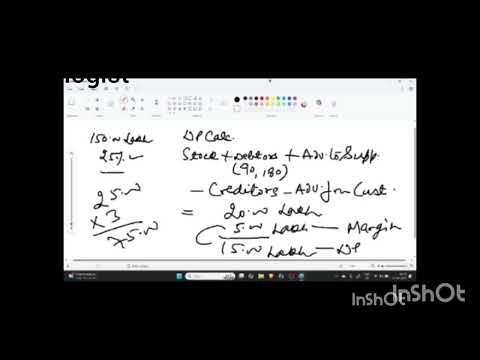 logist
150.00 Lakh
25%
25.00
x 3
75.00
DP Calc.
Stock + Debtors + Adv. to Supp.
(90, 180)
- Creditors - Adv. from Cust.
= 20.00 Lakh
5.00 Lakh — Margin
15.00 Lakh — DP
InShOt
InShOt